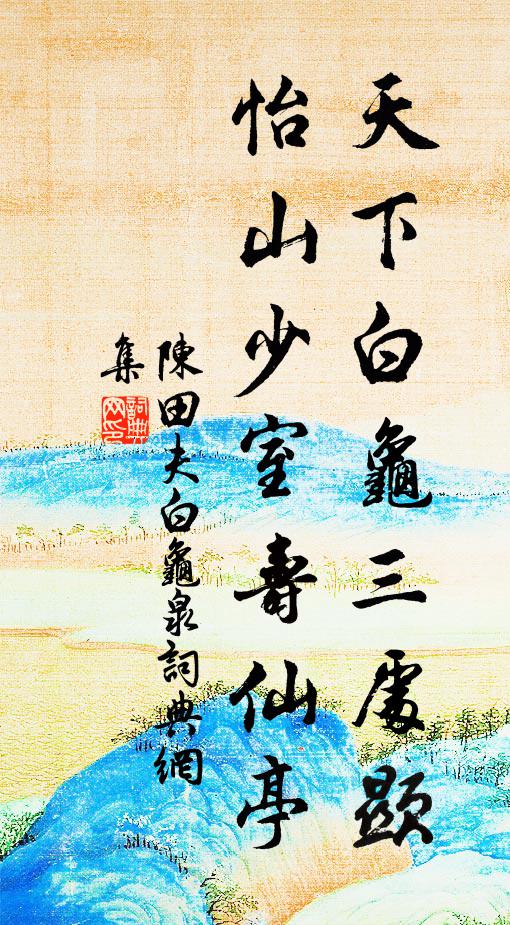 天下白龜三處顯
怡山少室壽仙亭
陳田夫白龜泉詞典網
集
詞典
网印